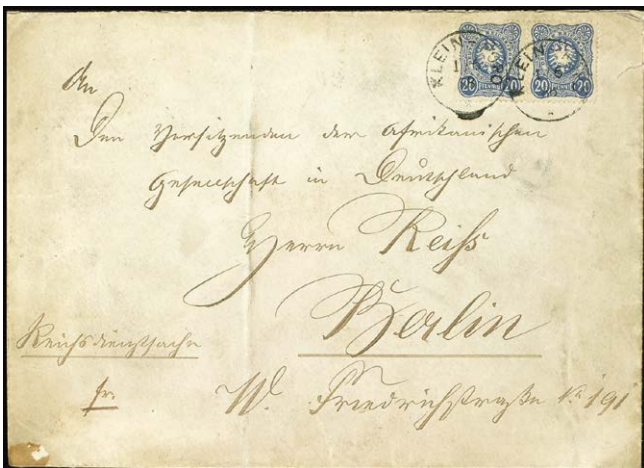 KLEIN POPO
KLEIN POPO
20 20
20 20
An
Den Vorsitzenden der Afrikanischen
Gesellschaft in Deutschland
Herrn Reiss
Berlin
Reichsdienstsache
fr.
W. Friedrichstraße No 191